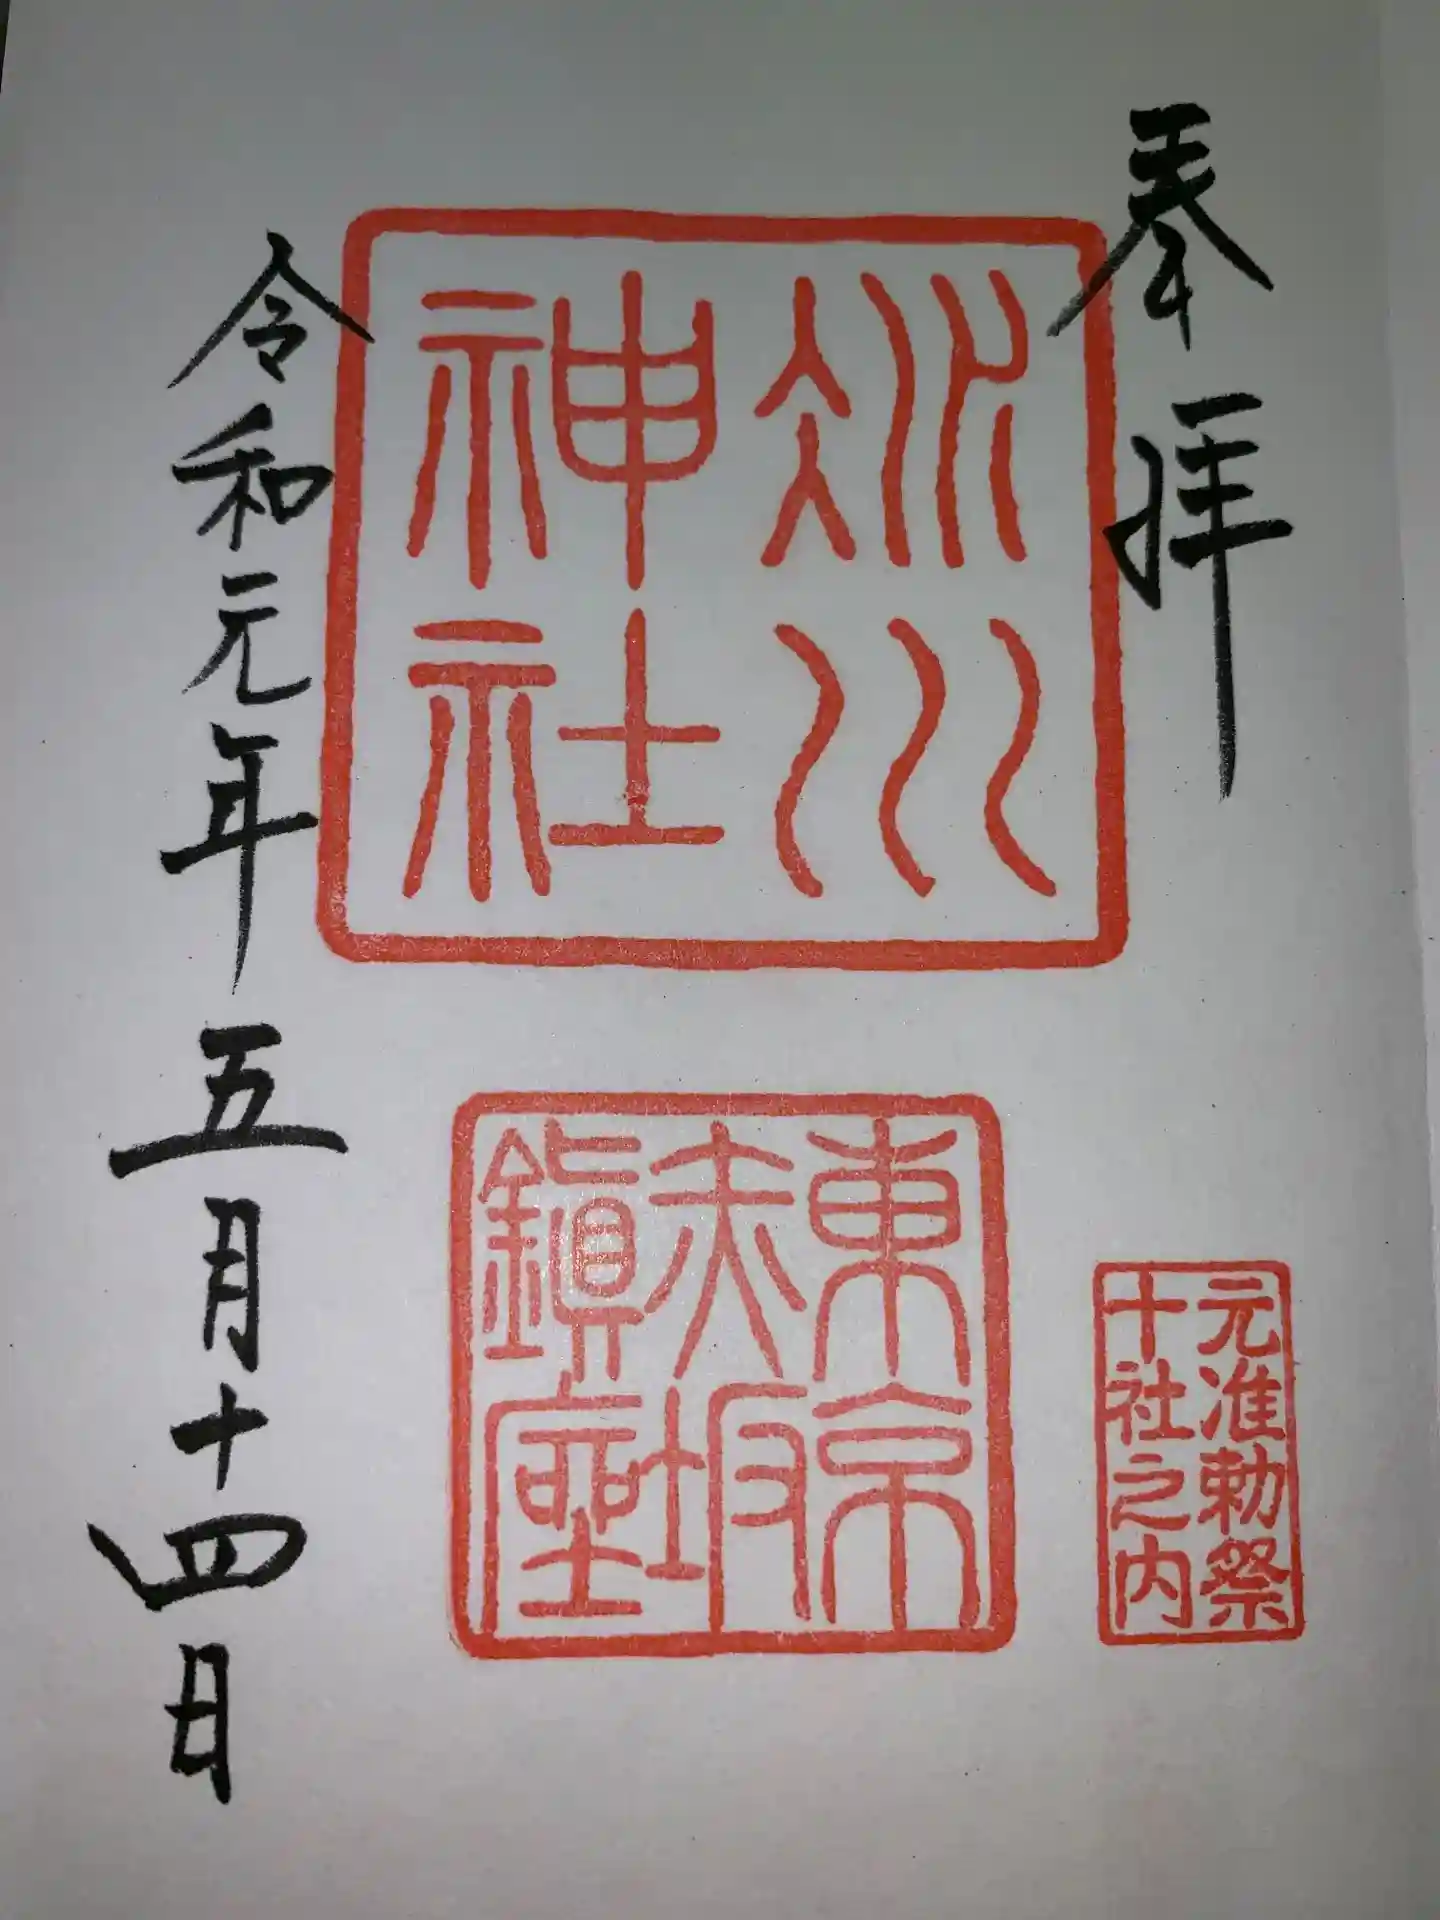 奉拝
氷川
神社
元准勅祭
十社之内
東京
赤坂
鎮座
令和元年五月十四日